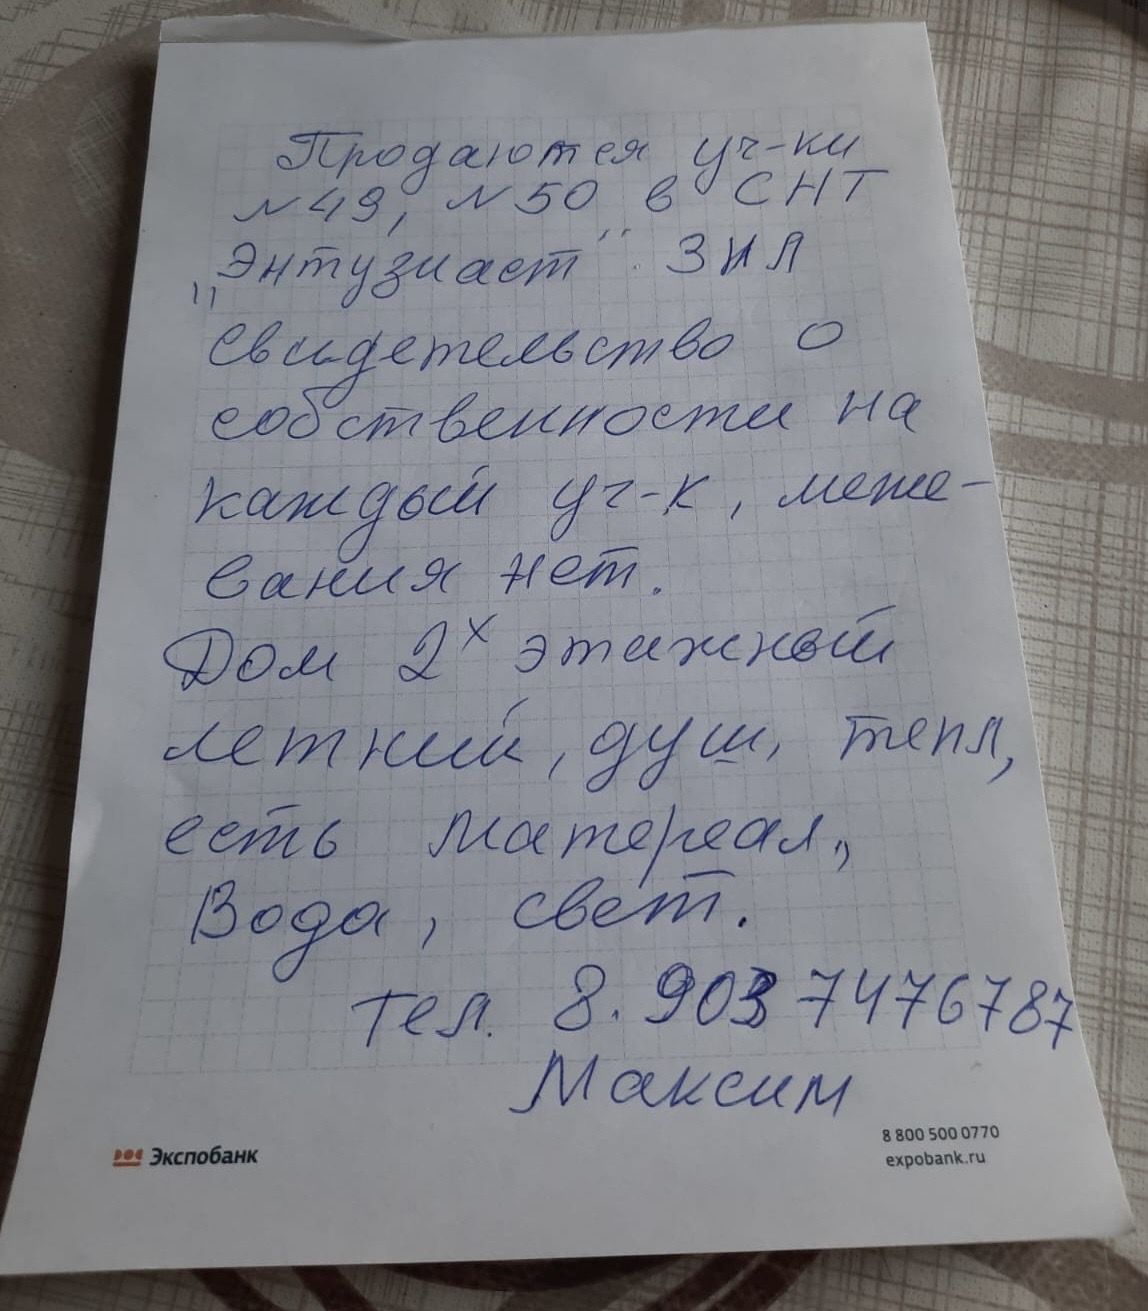 Продаются уч-ки
N49, N50 в СНТ
„Энтузиаст". ЗИЛ
Свидетельство о
собственности на
каждый уч-к, меже-
вания нет.
Дом 2х этажный
летний, душ, тепл,
есть матереал,,
Вода, свет.
тел. 8. 903 7476787
Максим
Экспобанк
8 800 500 0770
expobank.ru